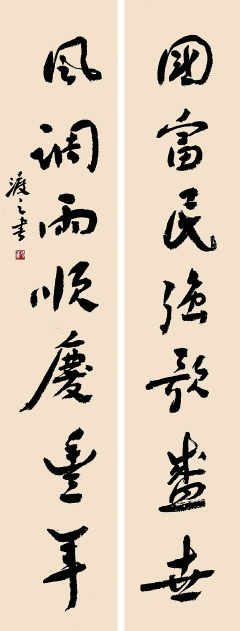 國富民強歌盛世
風調雨順慶豐年
渡之書